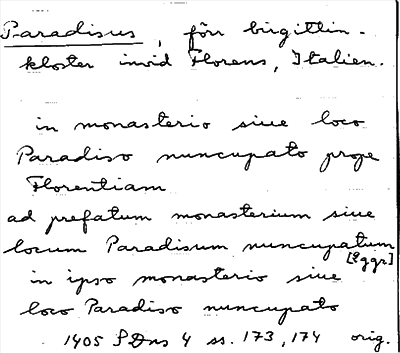 Paradisus, förr birgittin-
kloster invid Florens, Italien.
in monasterio siue loco
Paradiso nuncupato prope
Florentiam
ad prefatum monasterium siue
locum Paradisum nuncupatum
[2 ggr]
in ipso monasterio siue
loco Paradiso nuncupato
1405 SDns 4 ss. 173, 174 orig.